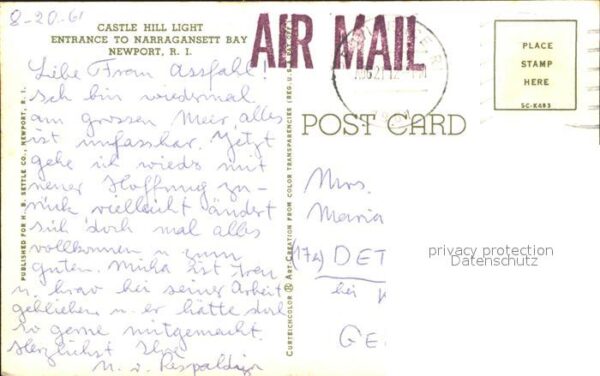 8-20-61
CASTLE HILL LIGHT
ENTRANCE TO NARRAGANSETT BAY
NEWPORT, R. I.
AIR MAIL
PLACE
STAMP
HERE
SC-K483
POST CARD
Liebe Frau Assfahl!
Ich bin wiedermal
am grossen Meer, alles
ist unfassbar. Jetzt
gehe ich wieder mit
neuer Hoffnung zu-
rück vielleicht ändert
sich doch mal alles
vollkommen u zum
guten. Mischa ist treu
u. brav bei seiner Arbeit
geblieben u. er hätte doch
so gerne mitgemacht.
Herzlichst Ihre
M. v.
PUBLISHED FOR H. B. SETTLE CO., NEWPORT, R. I.
CURTEICHCOLOR ® ART CREATION FROM COLOR TRANSPARENCIES (REG. U.S.A.
Mrs.
Maria
DET
bei
GE
privacy protection
Datenschutz